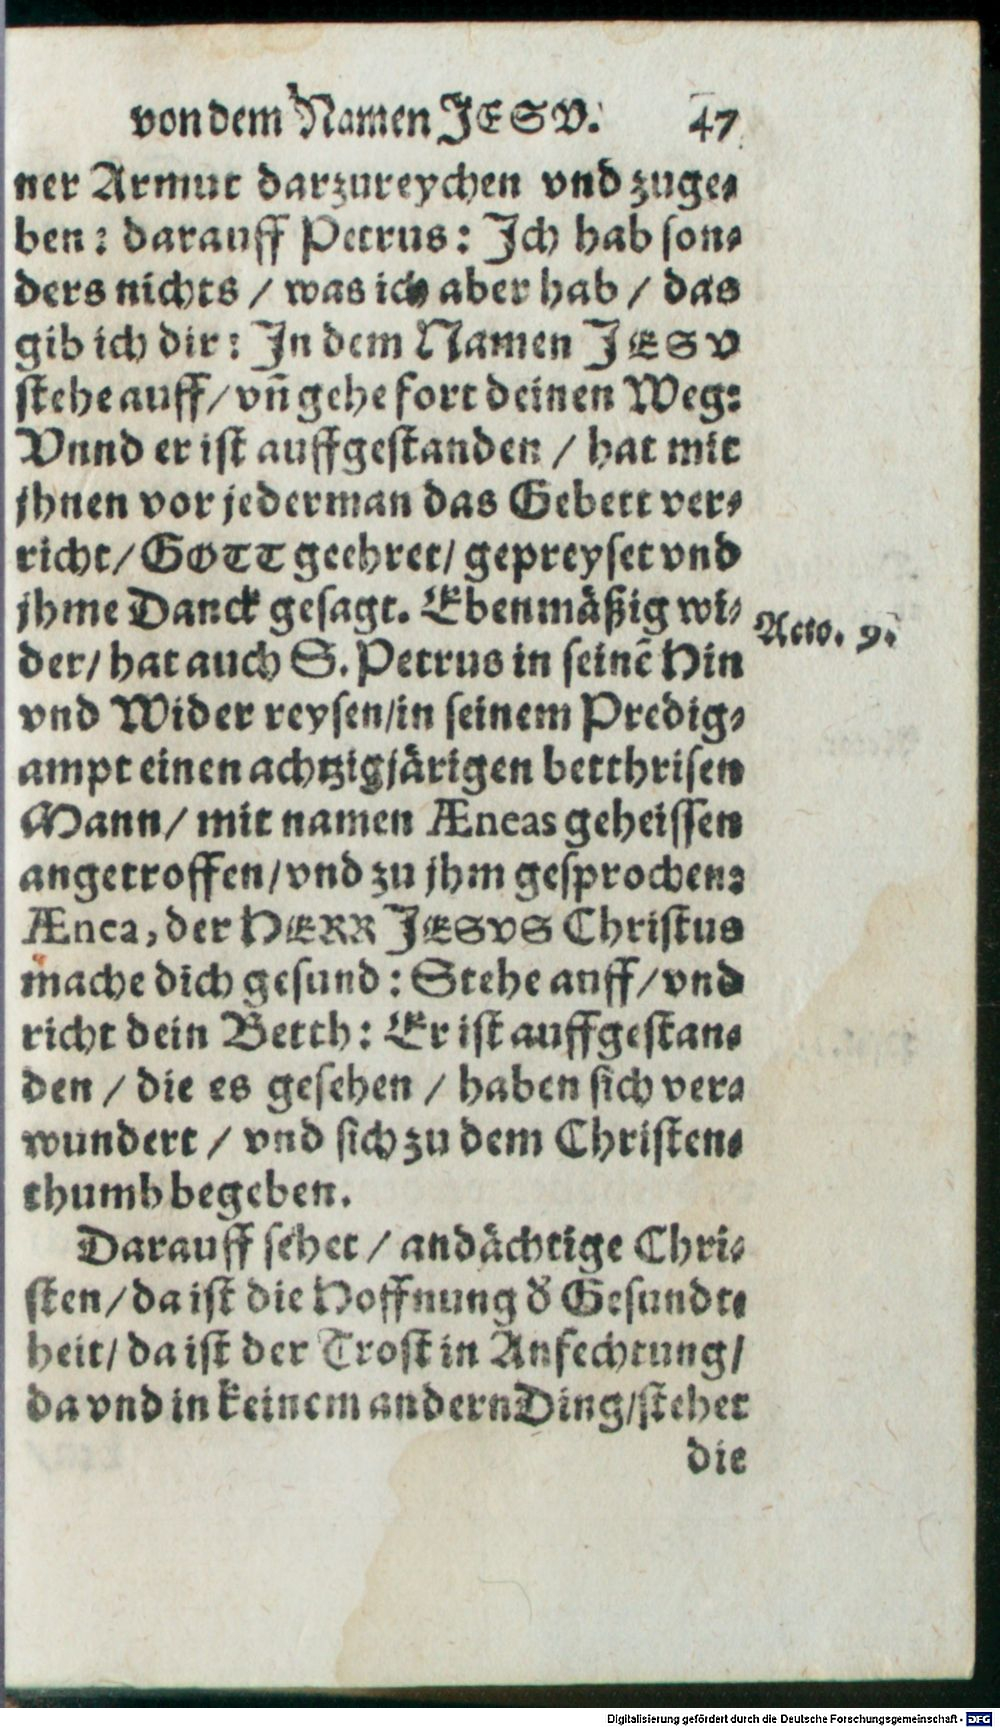 von dem Namen JESV. 47
ner Armut darzureychen vnd zuge-
ben: darauff Petrus: Jch hab son-
ders nichts / was ich aber hab / das
gib ich dir: Jn dem Namen JESV
stehe auff / vñ gehe fort deinen Weg:
Vnnd er ist auffgestanden / hat mit
jhnen vor jederman das Gebett ver-
richt / GOTT geehret / gepreyset vnd
jhme Danck gesagt. Ebenmäßig wi-
Acto. 9.
der / hat auch S. Petrus in seinẽ Hin
vnd Wider reysen / in seinem Predig-
ampt einen achtzigjärigen betthrisen
Mann / mit namen Æneas geheissen
angetroffen / vnd zu jhm gesprochen:
Ænea, der HERR JESVS Christus
mache dich gesund: Stehe auff / vnd
richt dein Betth: Er ist auffgestan-
den / die es gesehen / haben sich ver-
wundert / vnd sich zu dem Christen-
thumb begeben.
Darauff sehet / andächtige Chri-
sten / da ist die Hoffnung d' Gesundt-
heit / da ist der Trost in Anfechtung /
da vnd in keinem andern Ding / stehet
die
Digitalisierung gefördert durch die Deutsche Forschungsgemeinschaft - DFG